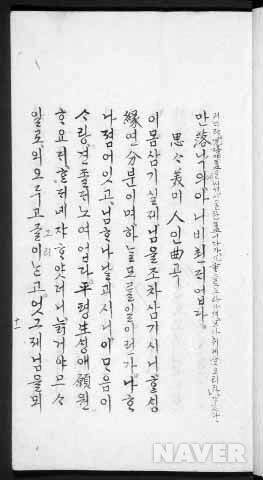 만落낙의아니비쵠ᄃᆡ업다
思ᄉᆞ美미人인曲곡
이몸삼기실제님을조차삼기시니ᄒᆞᆫ성
緣연分분이며하ᄂᆞᆯ모ᄅᆞᆯ일이런가나ᄒᆞ
나졈어잇고님ᄒᆞ나날괴시니이ᄆᆞ음이
ᄉᆞ랑견졸ᄃᆡ노여업다平평生ᄉᆡᆼ애願원
ᄒᆞ요ᄃᆡᄒᆞᆫᄃᆡ녜쟈ᄒᆞ얏더니늙거야므ᄉᆞ
그리
일로외오두고글이ᄂᆞᆫ고엇그제님을뫼
十一
NAVER